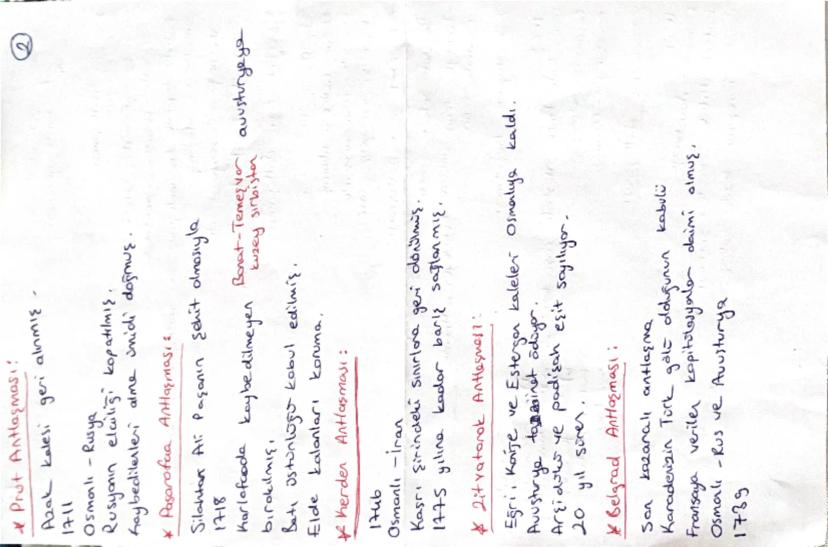 2
* Prut Antlaşması:
Azak kalesi geri alınmış.
1711
Osmanlı - Rusya
Rusyanın elçiliği kapatılmış.
Kaybedilenleri alma ümidi doğmuş.
* Pasarofça Antlaşması:
Silahtar Ali Paşanın şehit olmasıyla
1718
Karlofçada kaybedilmeyen Banat-Temeşvar kuzey sırbistan avusturyaya
bırakılmış.
Batı üstünlüğü kabul edilmiş.
Elde kalanları koruma.
* Kerden Antlaşması:
1746
Osmanlı - İran
Kasrı şirindeki sınırlara geri dönülmüş.
1775 yılına kadar barış sağlanmış.
* Zitvatorok Antlaşması:
Eğri, Kanije ve Estergon kaleleri Osmanlıya kaldı.
Avusturya tazminat ödüyor.
Arşidükü ve padişah eşit sayılıyor.
20 yıl süren.
* Belgrad Antlaşması:
Son kazançlı antlaşma
Karadenizin Türk gölü olduğunun kabulü
Fransaya verilen kapitülasyonlar daimi olmuş.
Osmanlı - Rus ve Avusturya
1739